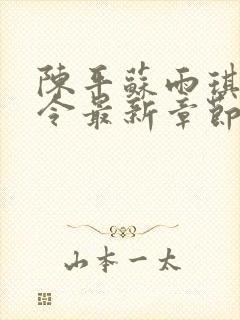 陳平蘇雨琪
令最新章節
山本一太